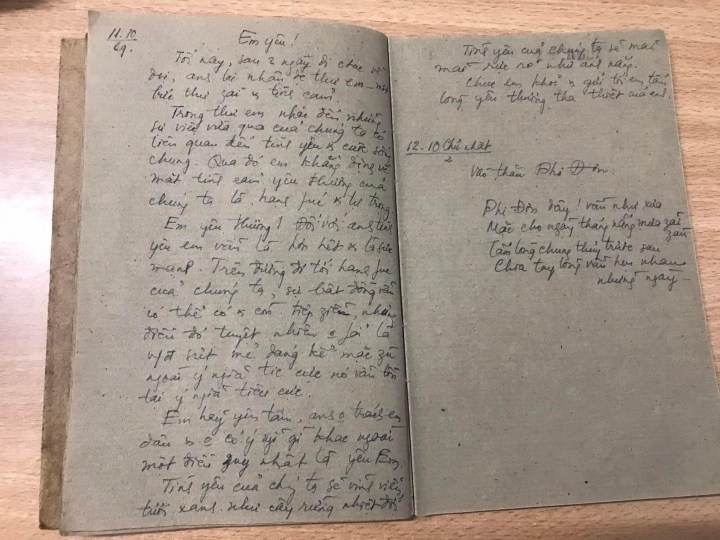 11.10
69.
Em yêu!
Tối này, sau 2 ngày đi công về
đơi, ans lại nhận đc thư em
bức thư zài x tìns cam.
Trong thư em nhắc đến nhữns
sự việc vừa qua của chúng ta có
liên quan đến tìns yêu x cuộc sốns
chung. Qua đó em khẳng định về
mặt tìns cam yêu thương của
chúng ta là hans fuc x tự trọng.
Em yêu thương! Đối với ans tìns
yêu em vẫn là hơn hết x là sức
mans. Trên đường đi tới hans fuc
của chúng ta, sự bất đồng vẫn
có thể có x còn tiếp ziễn, nhưng
điều đó tuyệt nhiên o fải là
vột sứt mẻ đáng kể mặc zù
ngoài ý nghĩa tic cực nó vẫn tồn
tại ý nghĩa tiêu cực.
Em hãy yên tâm, ans o trács em
đâu x o có ý nghĩ gì khác ngoài
một điều zuy nhất là yêu Em.
Tìns yêu của chúg ta sẽ vĩns viễn
tươi xans như cây rừng nhiệt đới
Tìns yêu của chúng ta sẽ mãi
mãi rực rỡ như ans nắng.
Chúc em khoẻ x gửi tới em tấm
lòng yêu thương tha thiết của em
12-10 Chủ nhật
Vào thăm Phi Đôn.
Phi Đôn đây! vẫn như xưa
Mặc cho ngày tháng nắng mưa zãi zầu
Tấm lòng chung thủy trước sau
Chia tay lòng vẫn hẹn nhau
những ngày—